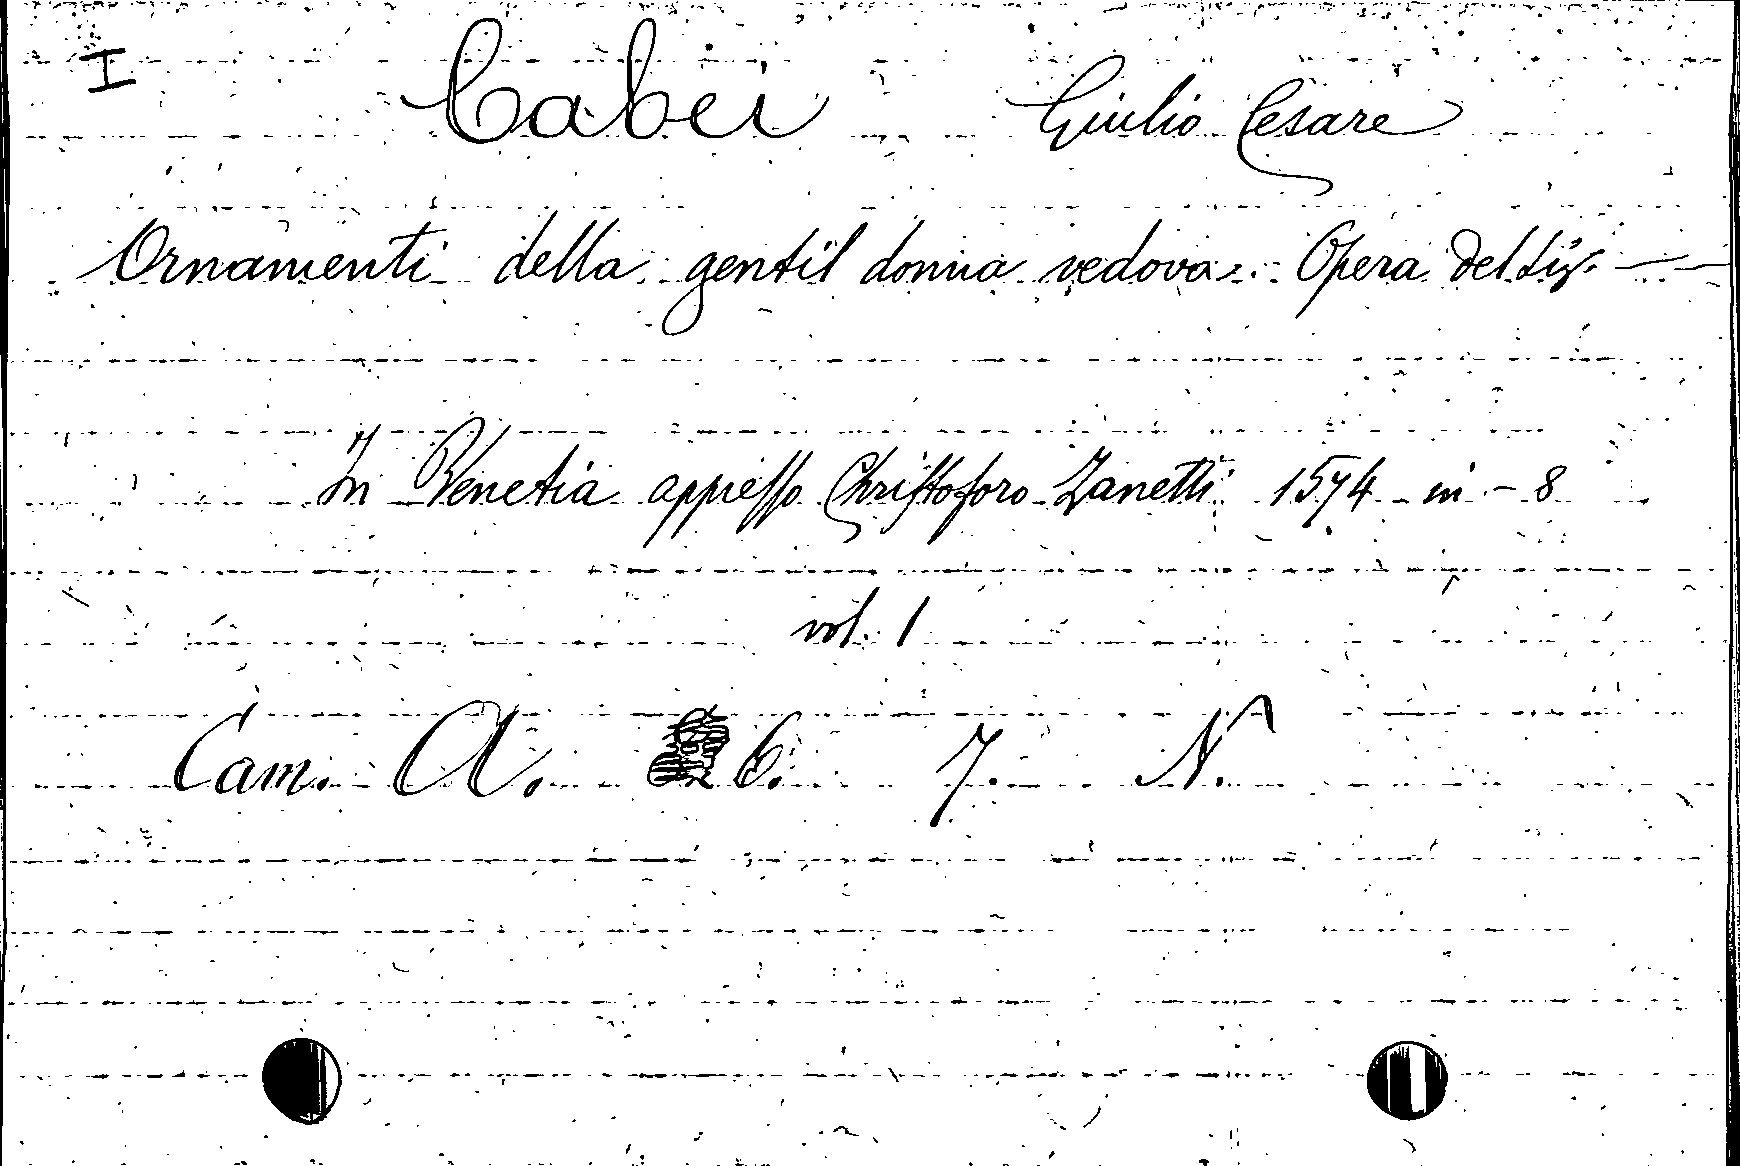 I Cabei Giulio Cesare
Ornamenti della gentil donna vedova. Opera del Sig. —
In Venetia appresso Christoforo Zanetti 1574 in-8
vol. 1
Cam. A. 6. 7. N.